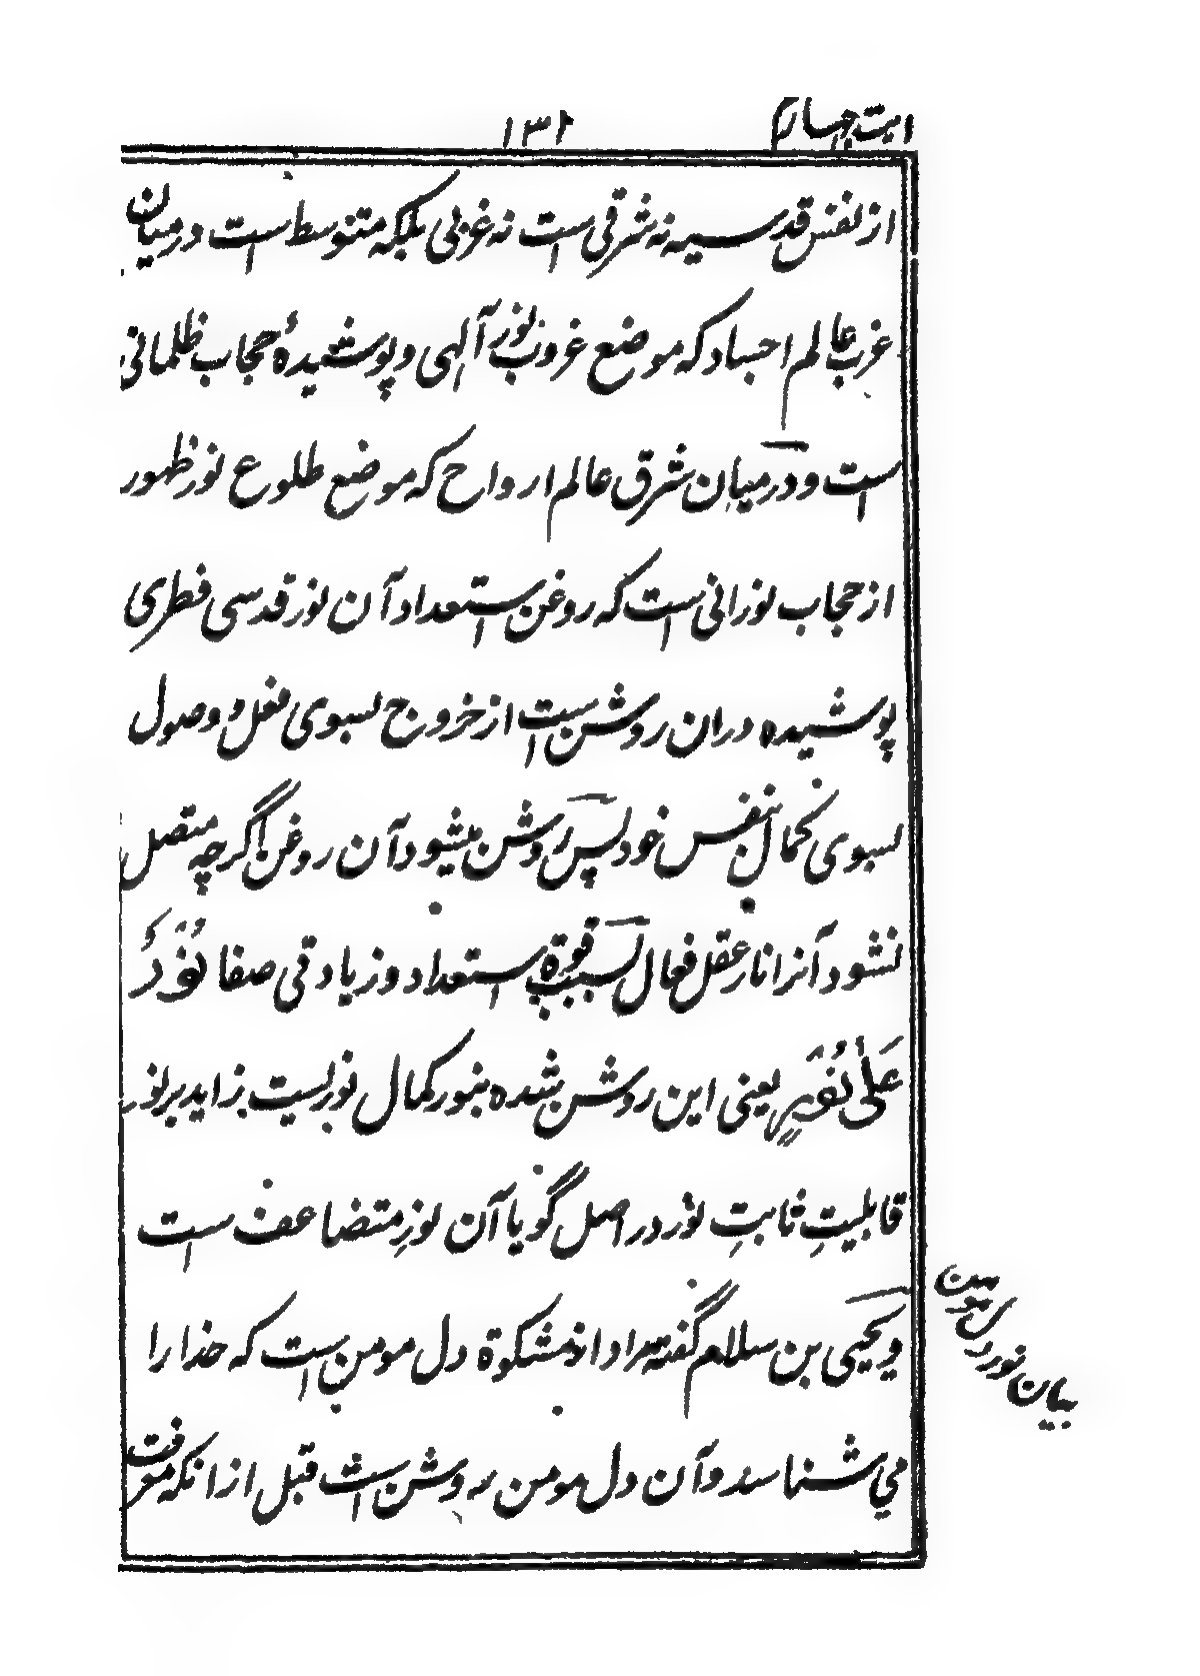 ایت چہارم
۱۳۱
از نفس قدسیه نه شرقی است نه غربی بلکه متوسط است درمیان
غرب عالم اجساد که موضع غروب نور آلهی و پوشیدۀ حجاب ظلمانی
است و درمیان شرق عالم ارواح که موضع طلوع نور ظهور
از حجاب نورانی است که روغن استعداد آن نور قدسی فطری
پوشیده دران روشن است از خروج بسوی فعل و وصول
بسوی کمال بنفس خود پس روشن میشود آن روغن اگرچه متصل
نشود آنرا نار عقل فعال بسبب قوة استعداد و زیادتی صفا نُوْرٌ
عَلٰی نُوْرٍ یعنی این روشن شده بنور کمال نوریست زاید بر نور
قابلیتِ ثابتِ نور در اصل گویا آن نورِ متضاعف است
و یحیی بن سلام گفته مراد از مشکوة دل مومن است که خدا را
می شناسد و آن دل مومن روشن است قبل از انکه معرفت
بیان نور دل مومن